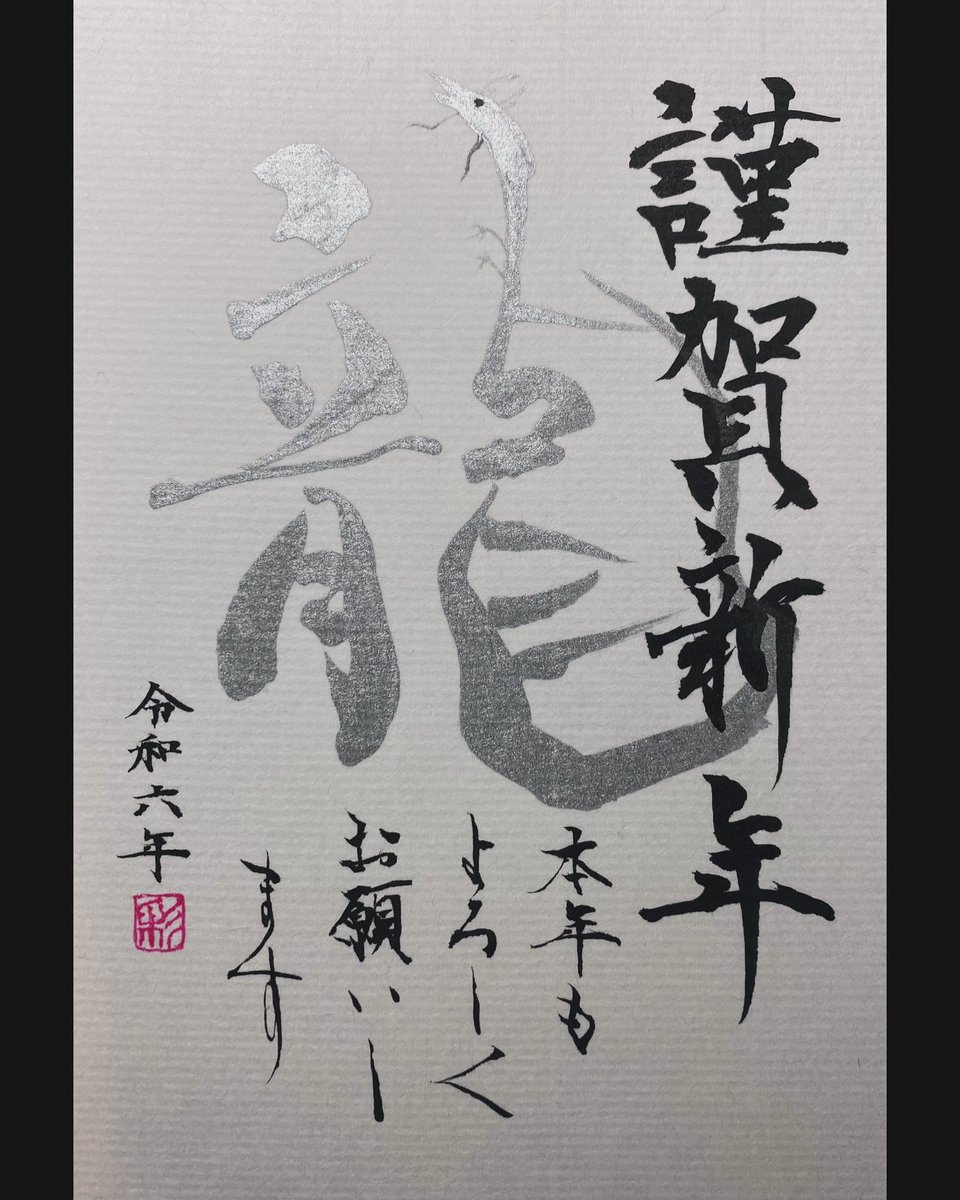 謹賀新年
龍
本年も
よろしく
お願いし
ます
令和六年
彩